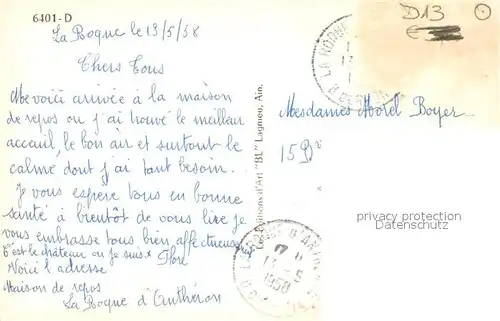 6401-D
La Roque le 13/5/58
Chers Tous
Me voici arrivée à la maison
de repos ou j'ai trouvé le meilleur
acceuil, le bon air et surtout le
calme dont j'ai tant besoin.
Je vous espère tous en bonne
santé à bientôt de vous lire je
vous embrasse tous bien affectueuse
C'est le château ou je suis Flore
Voici l'adresse
Maison de repos
La Roque d'Anthéron
Editions d'Art "BL" Lagnieu, Ain.
D13
LA ROQUE
Mesdames Morel Boyer
15 Bd
privacy protection
Datenschutz
LA ROQUE D'ANTH
17 H
13 - 5
1958